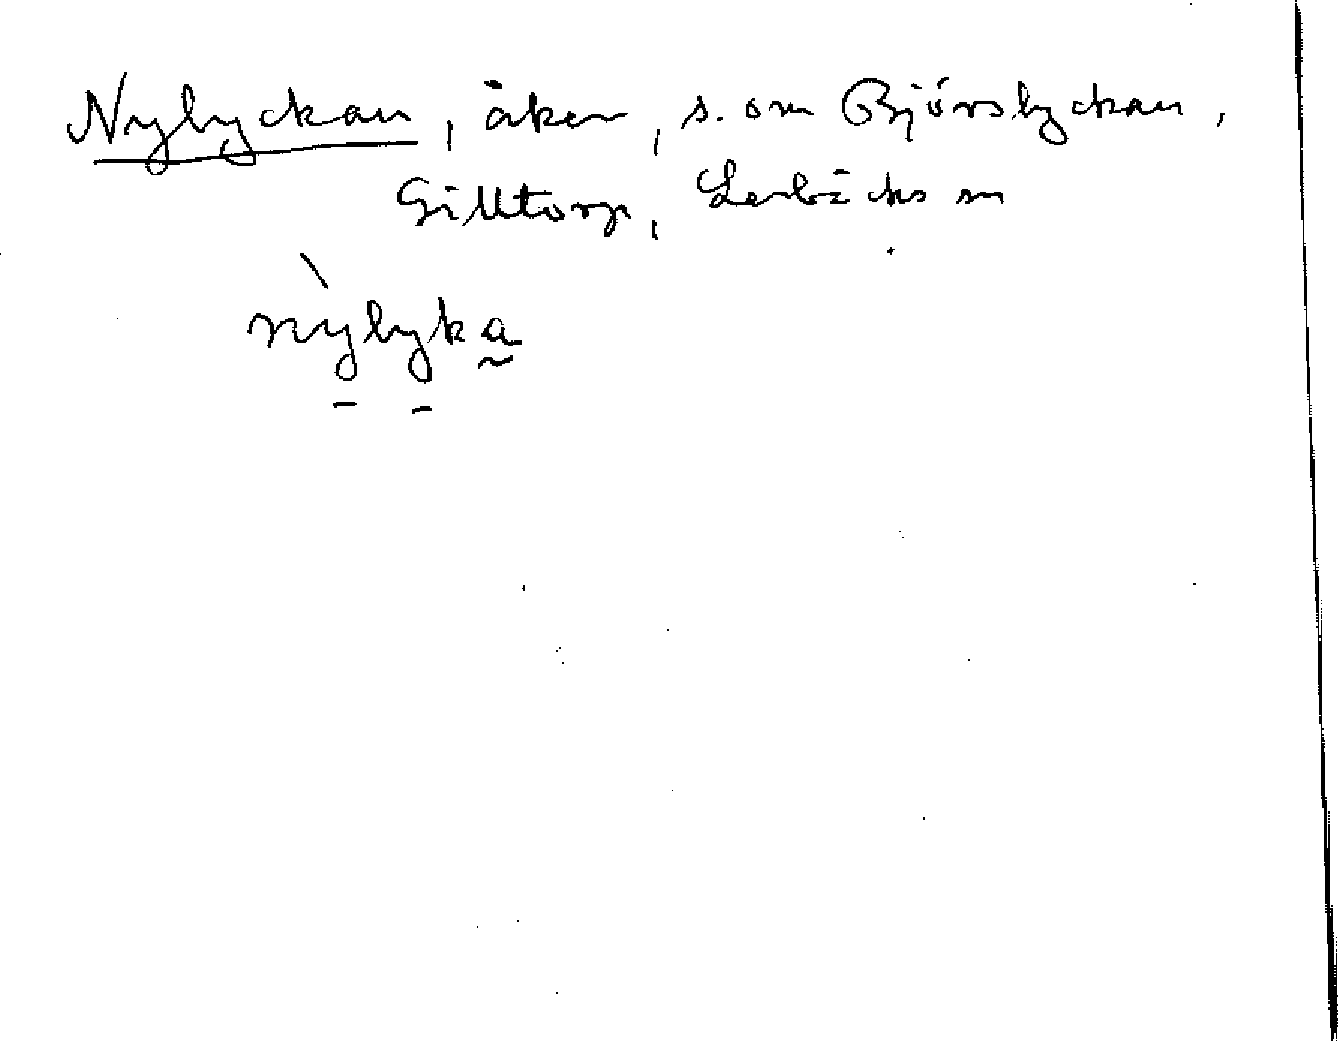 Nylyckan, åker, s. om Björslyckan,
Gilltorp, Lerbäcks sn
nỳlyka